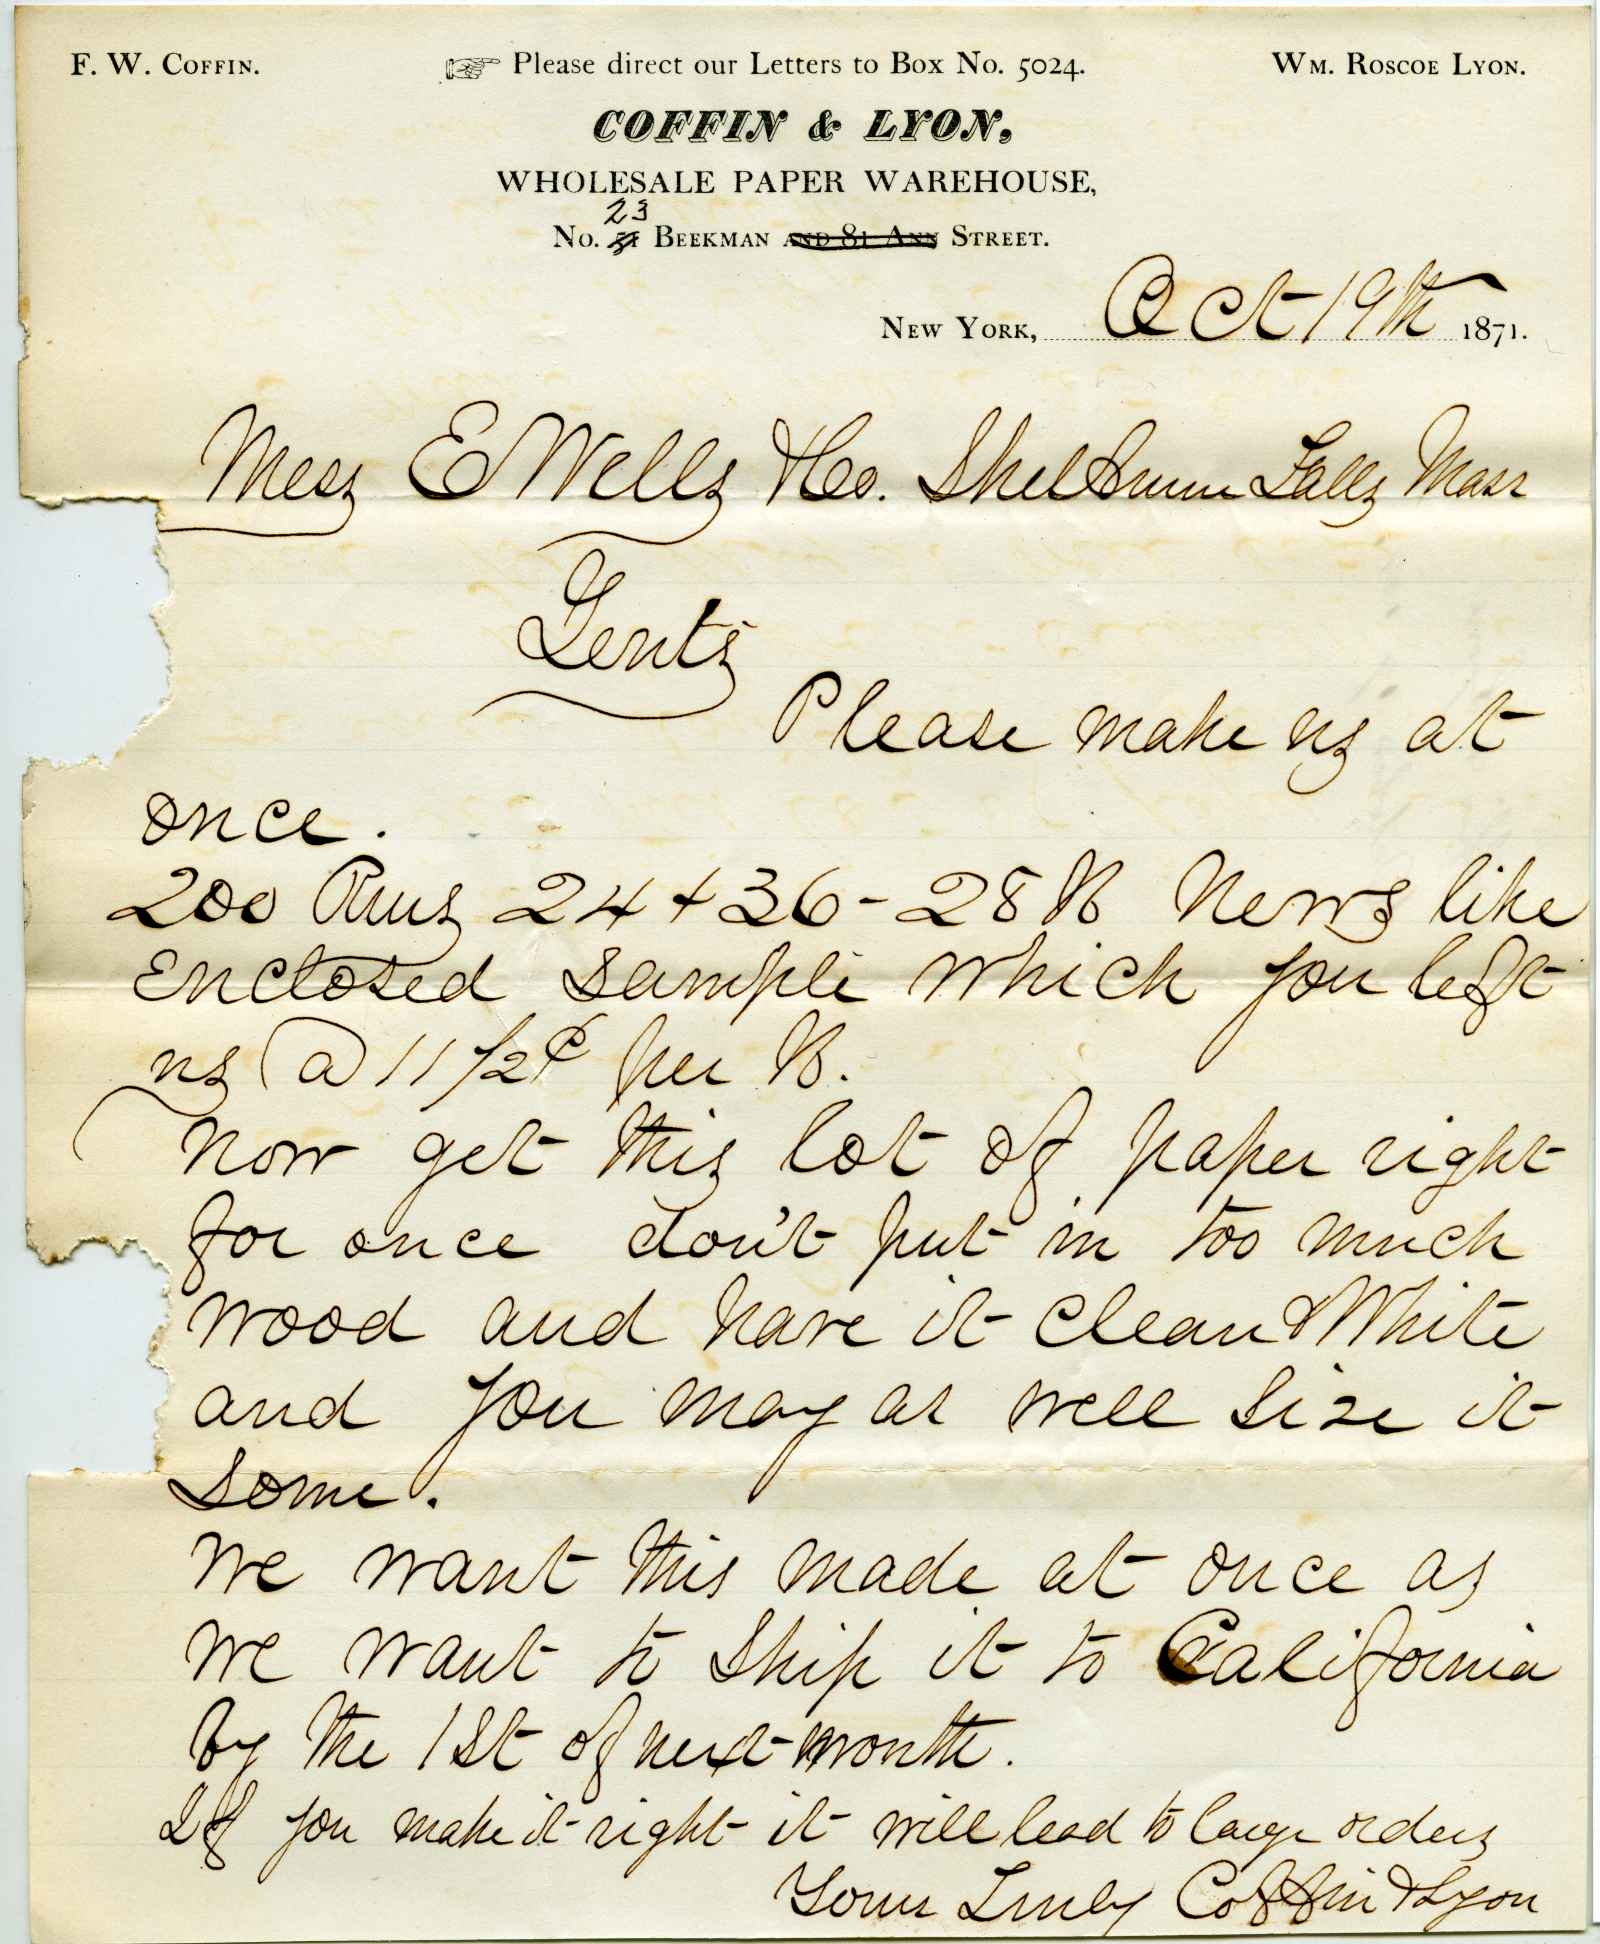 F. W. COFFIN.
Please direct our Letters to Box No. 5024.
WM. ROSCOE LYON.
COFFIN & LYON,
WHOLESALE PAPER WAREHOUSE,
23
No. 51 BEEKMAN AND 81 ANN STREET.
NEW YORK, Oct 19th 1871.
Mess E Wells & Co. Shelburne Falls Mass
Gents
Please make us at
once.
200 Rms 24 + 36 - 28 lb News like
Enclosed sample which you left
us @ 11 1/2 ¢ per lb.
Now get this lot of paper right
for once don't put in too much
wood and have it clean & White
and you may as well size it
some.
We want this made at once as
we want to ship it to California
by the 1st of next month.
If you make it right it will lead to large orders
Yours Truly Coffin & Lyon